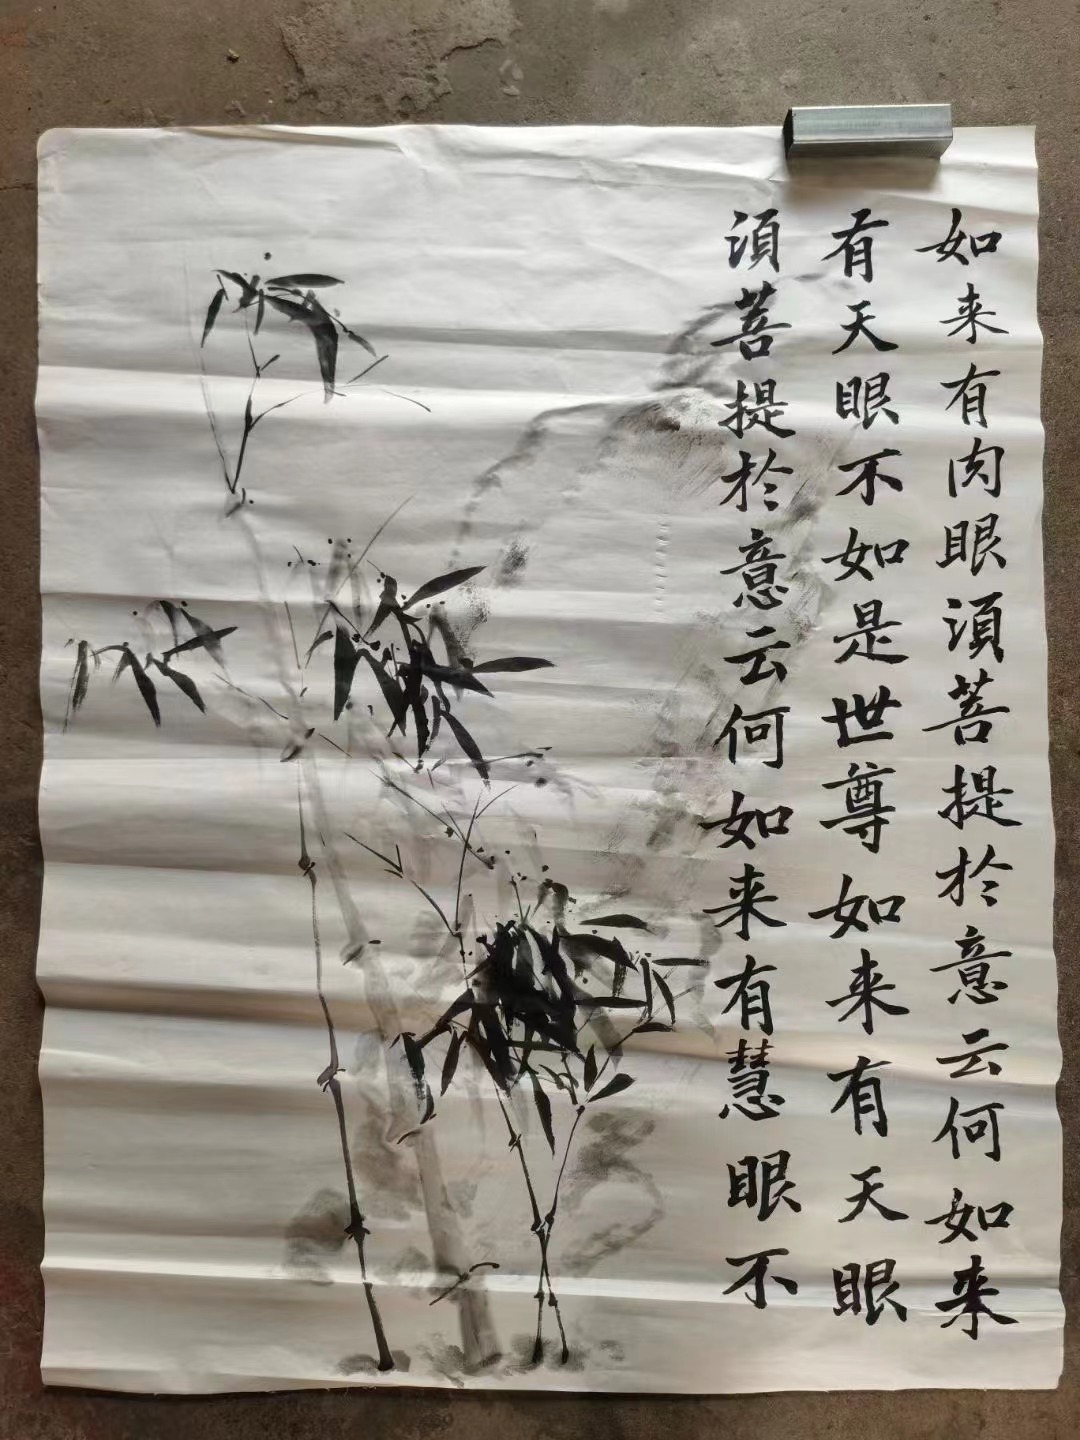 如来有肉眼須菩提於意云何如来
有天眼不如是世尊如来有天眼
須菩提於意云何如来有慧眼不